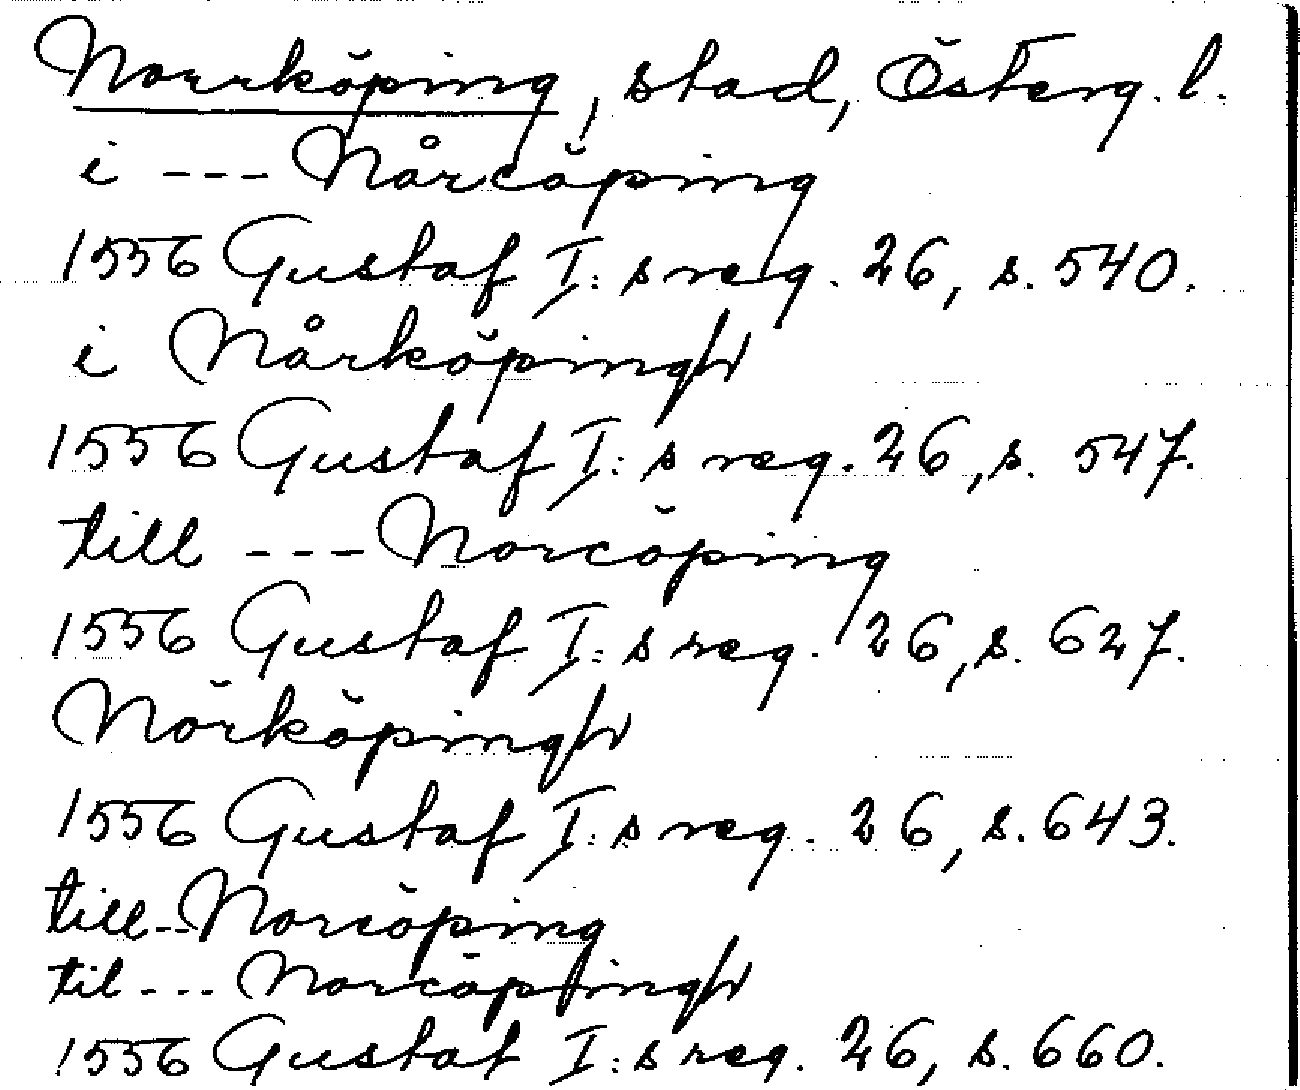 Norrköping, stad, Österg. l.
i --- Nårcöping
1556 Gustaf I:s reg. 26, s. 540.
i Nårköpingh
1556 Gustaf I:s reg. 26, s. 547.
till --- Norcöping
1556 Gustaf I:s reg. 26, s. 627.
Nörköpingh
1556 Gustaf I:s reg. 26, s. 643.
till --- Norcöping
til --- Norcöpingh
1556 Gustaf I:s reg. 26, s. 660.